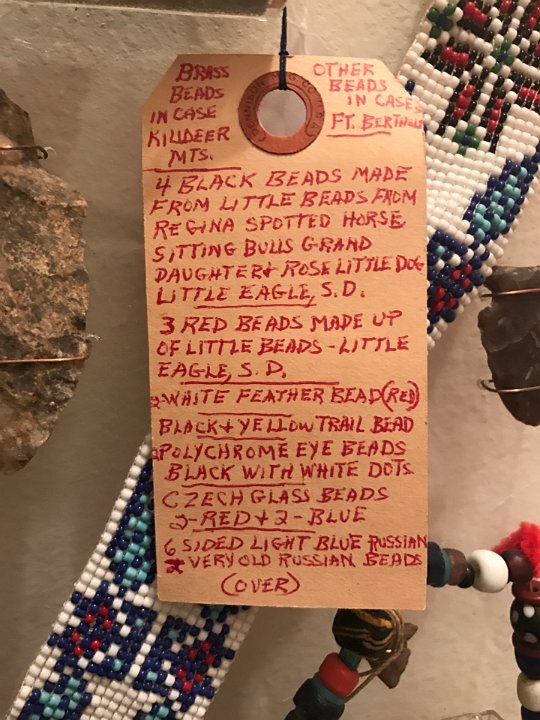 BRASS
BEADS
IN CASE
KILLDEER
MTS.
OTHER
BEADS
IN CASE
FT. BERTHOLD
4 BLACK BEADS MADE
FROM LITTLE BEADS FROM
REGINA SPOTTED HORSE
SITTING BULLS GRAND
DAUGHTER + ROSE LITTLE DOG
LITTLE EAGLE, S.D.
3 RED BEADS MADE UP
OF LITTLE BEADS - LITTLE
EAGLE, S.D.
WHITE FEATHER BEAD (RED)
BLACK + YELLOW TRAIL BEAD
POLYCHROME EYE BEADS
BLACK WITH WHITE DOTS
CZECH GLASS BEADS
2-RED + 2-BLUE
6 SIDED LIGHT BLUE RUSSIAN
VERY OLD RUSSIAN BEADS
(OVER)